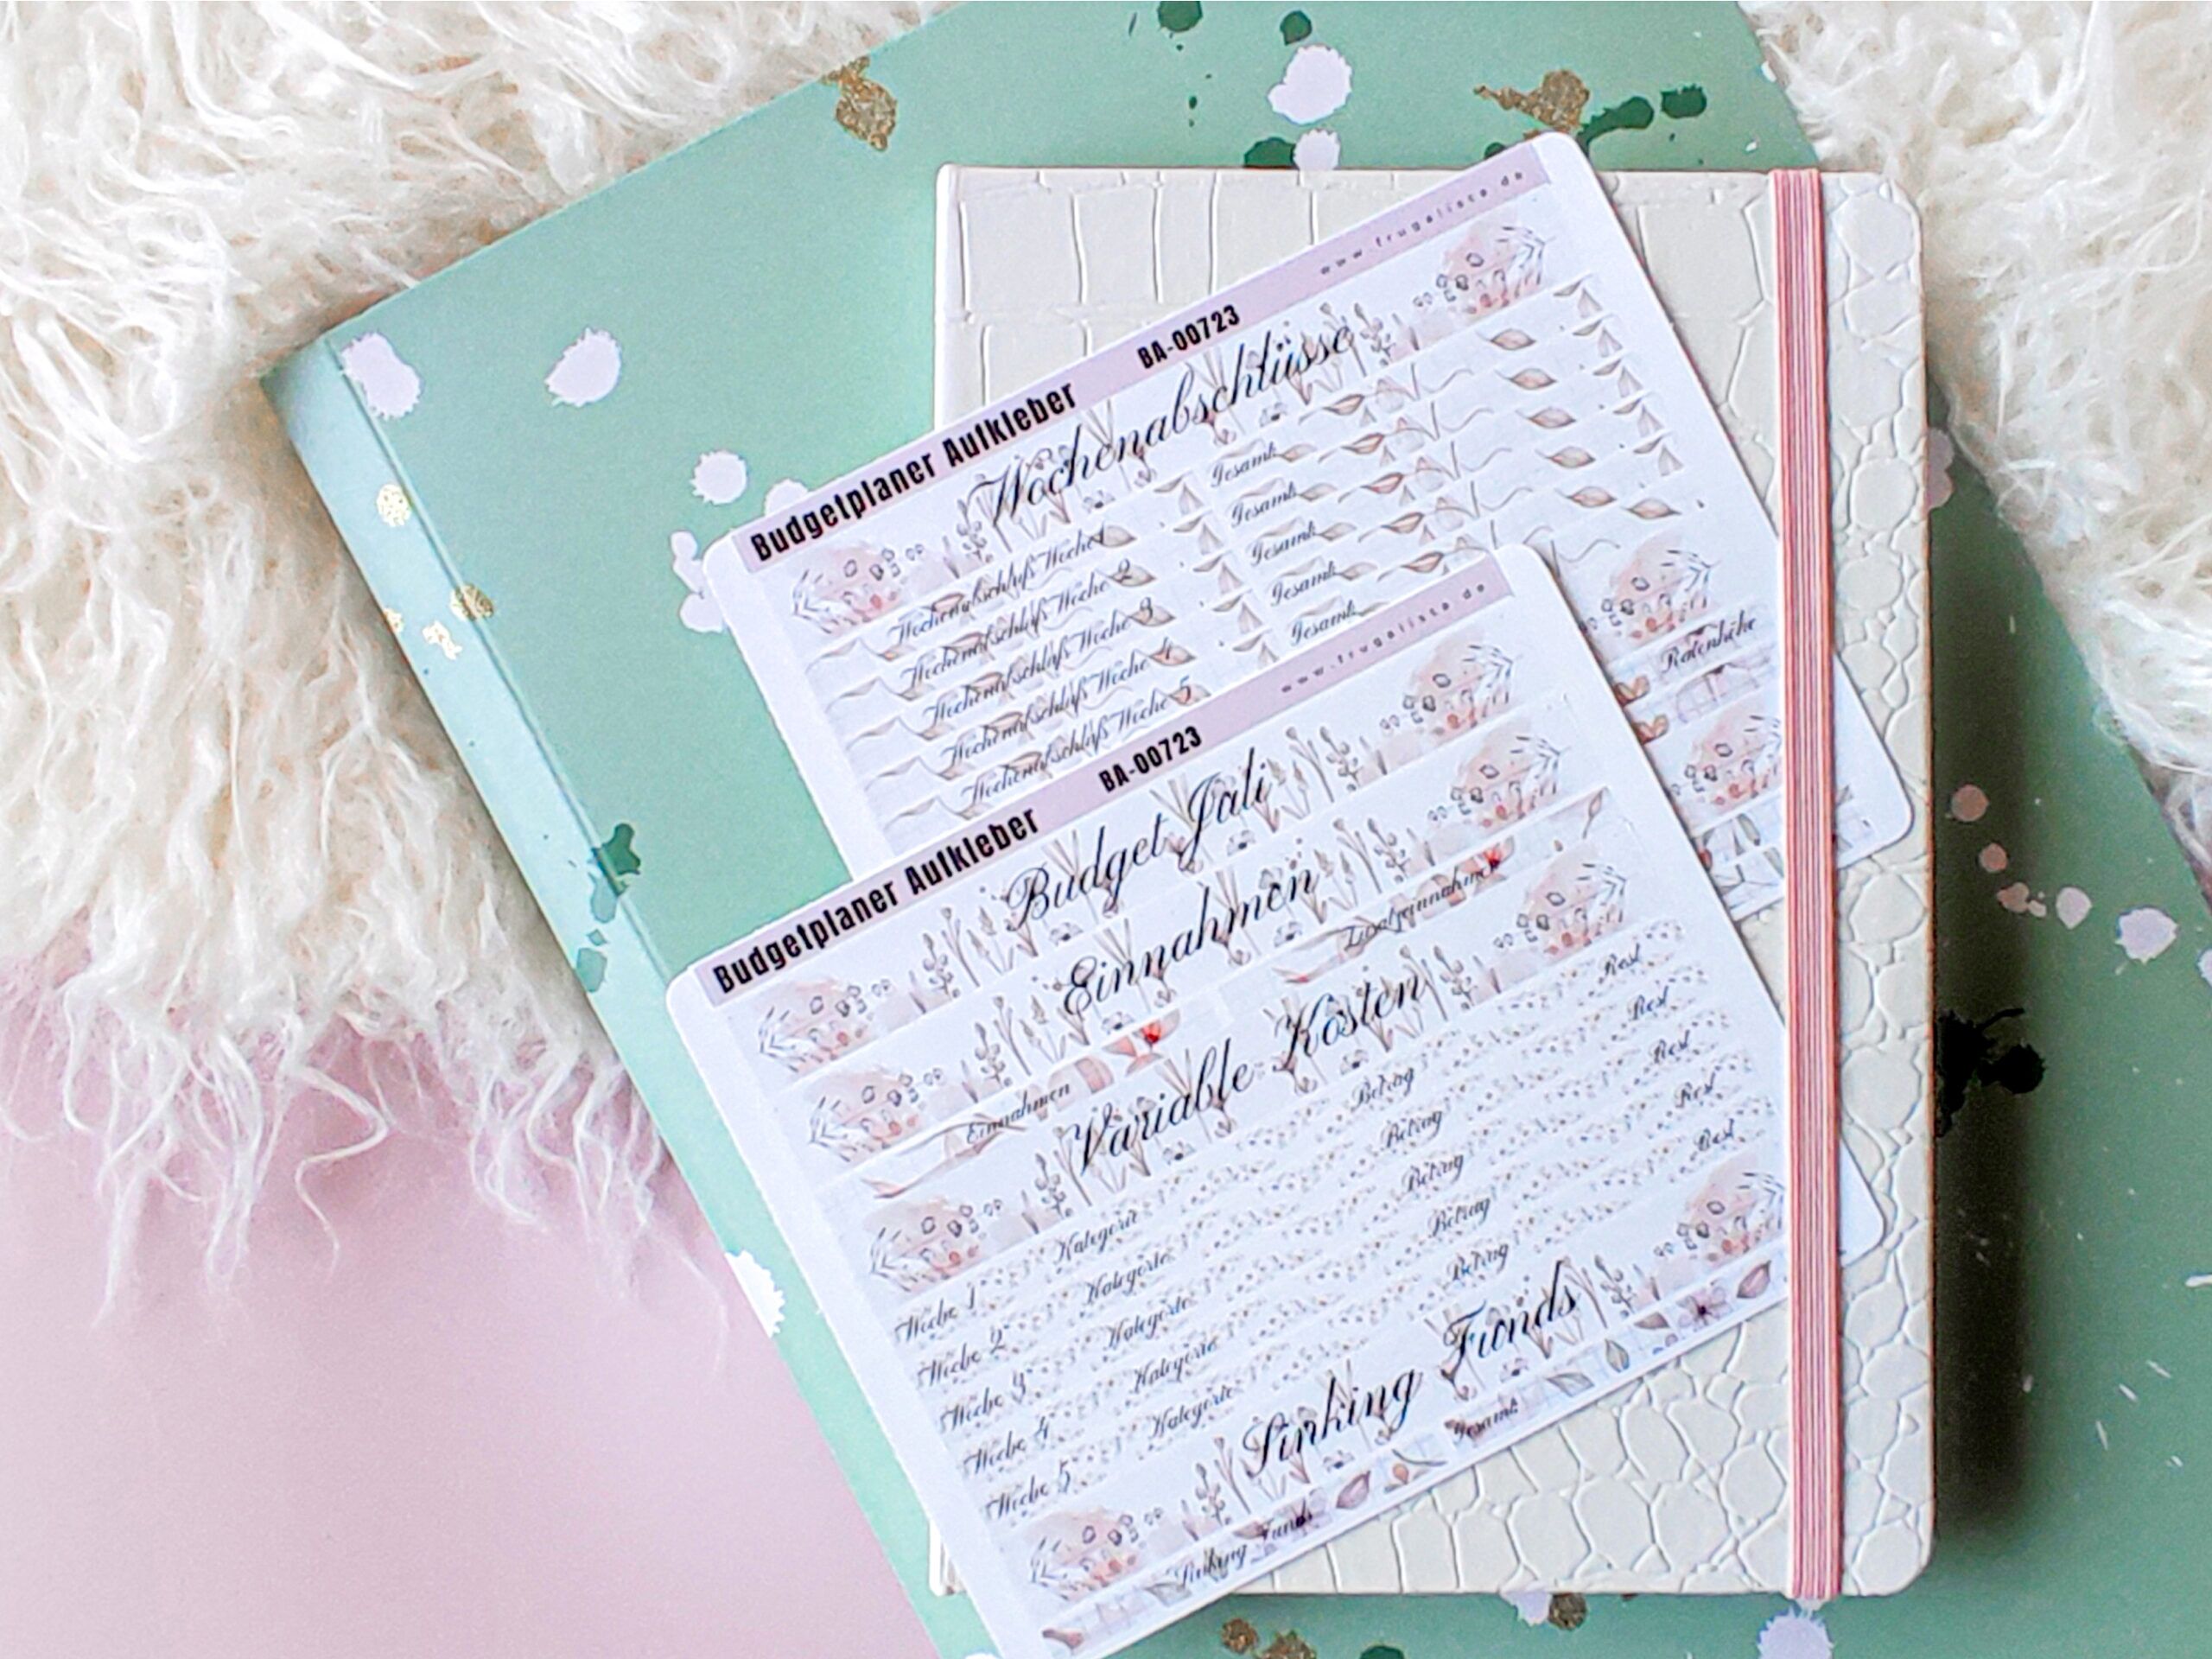 Budgetplaner Aufkleber BA-00723 www.frugaliste.de
Wochenabschlüsse
Wochenabschluß Woche 1 Gesamt:
Wochenabschluß Woche 2 Gesamt:
Wochenabschluß Woche 3 Gesamt:
Wochenabschluß Woche 4 Gesamt:
Wochenabschluß Woche 5 Gesamt:
Ratenhöhe
Budgetplaner Aufkleber BA-00723 www.frugaliste.de
Budget Juli
Einnahmen
Einnahmen Zusatzeinnahmen
Variable Kosten
Woche 1 Kategorie Betrag Rest
Woche 2 Kategorie Betrag Rest
Woche 3 Kategorie Betrag Rest
Woche 4 Kategorie Betrag Rest
Woche 5 Kategorie Betrag Rest
Sinking Funds
Sinking Funds Gesamt: